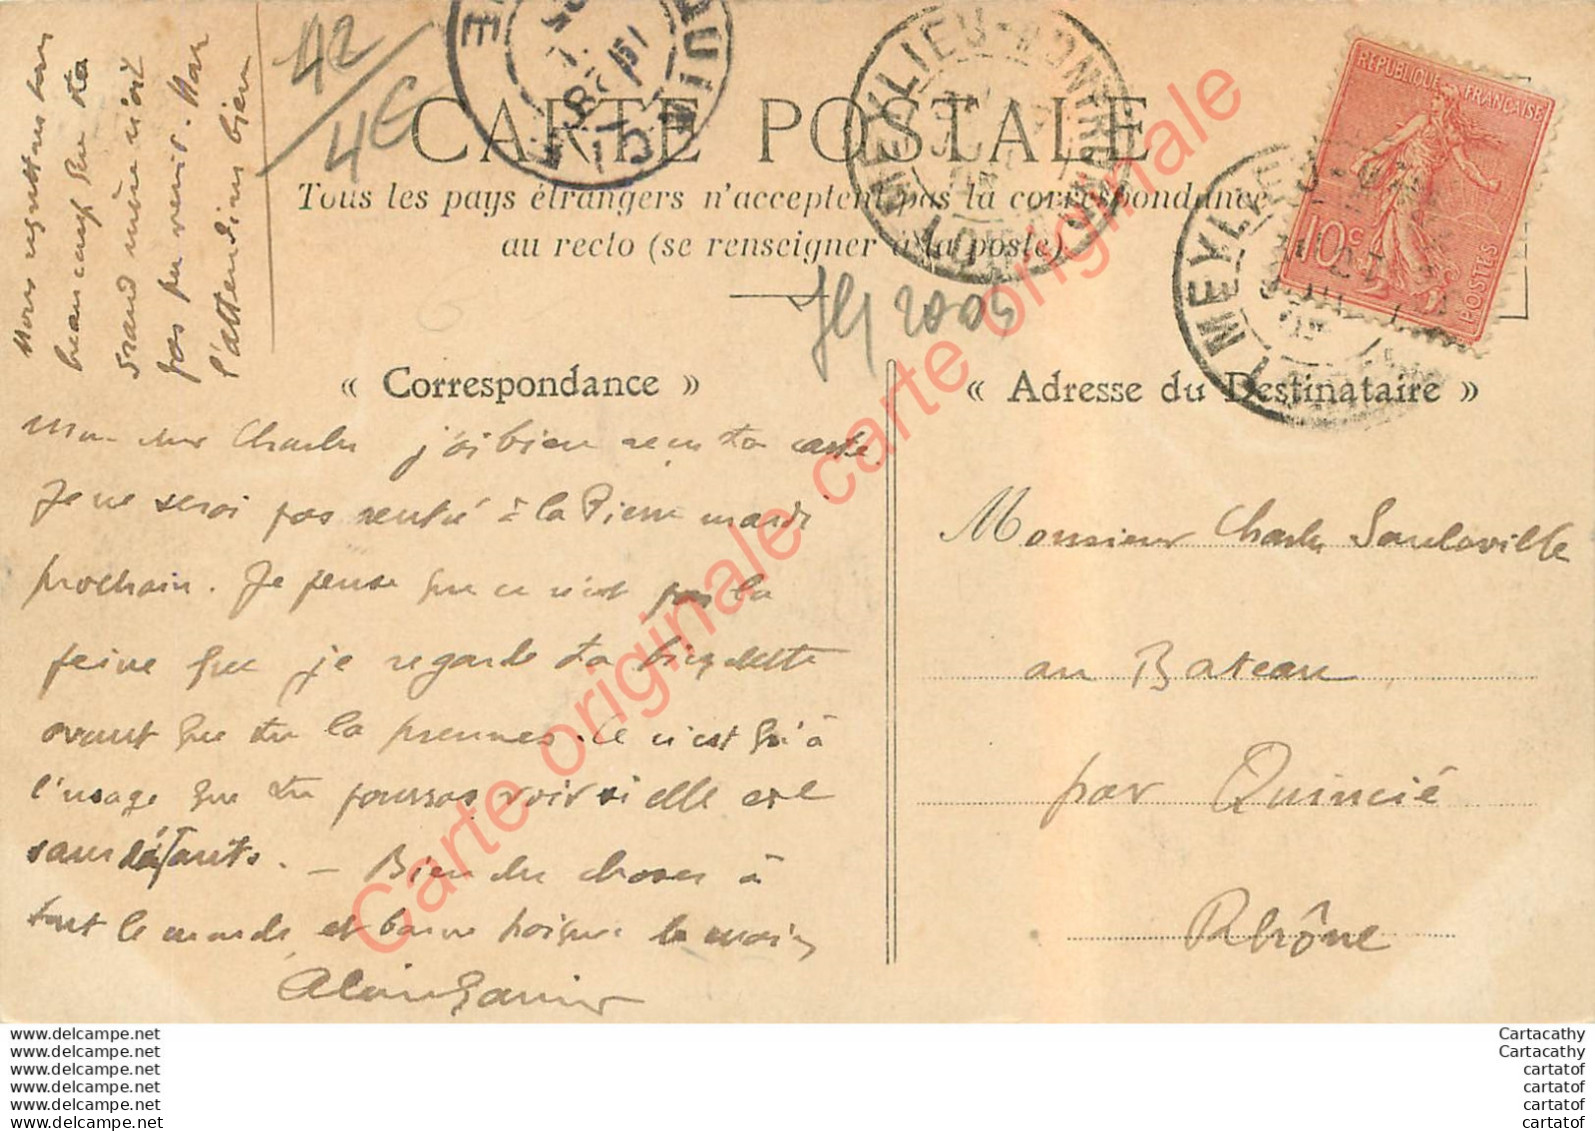 Nous regrettons tous
beaucoup que ta
grand mère n'ait
pas pu venir. Nous
l'attendions bien
42
4€
QUINCIÉ
CARTE POSTALE
Tous les pays étrangers n'acceptent pas la correspondance
au recto (se renseigner à la poste)
MEYLIEU-MONTROND
LOIRE
MEYLIEU-MONTROND
REPUBLIQUE FRANÇAISE
10c
POSTES
2005
« Correspondance »
Mon cher Charles j'ai bien reçu ta carte
Je ne serai pas rentré à la Pierre mardi
prochain. Je pense que ce n'est pas la
peine que je regarde ta bicyclette
avant que tu la prennes. Ce n'est qu'à
l'usage que tu pourras voir si elle est
sans défauts. — Bien des choses à
tout le monde et bonne poignée de main
« Adresse du Destinataire »
Monsieur Charles Sanlaville
au Bateau
par Quincié
Rhône
Carte originale carte originale carte originale
www.delcampe.net
www.delcampe.net
www.delcampe.net
www.delcampe.net
www.delcampe.net
www.delcampe.net
Cartacathy
Cartacathy
cartatof
cartatof
cartatof
cartatof